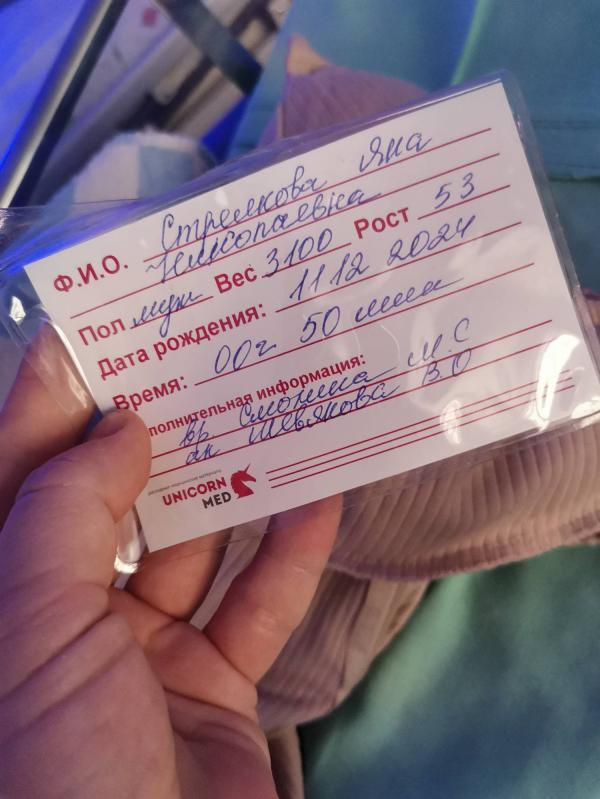 Ф.И.О. Стрелкова Яна
Николаевна
Пол муж Вес 3100 Рост 53
Дата рождения: 11 12 2024
Время: 00г 50 мин
полнительная информация:
вр Смонина М С
ак Шевякова В.О
UNICORN
MED